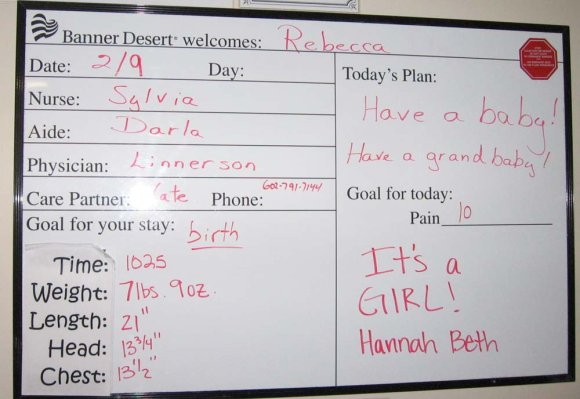 Banner Desert welcomes: Rebecca
Date: 2/9 Day:
Nurse: Sylvia
Aide: Darla
Physician: Linnerson
Care Partner: Nate Phone: 602-791-7144
Goal for your stay: birth
Time: 1025
Weight: 7lbs. 9oz.
Length: 21"
Head: 13 3/4"
Chest: 13 1/2"
Today's Plan:
Have a baby!
Have a grandbaby!
Goal for today:
Pain 10
It's a
GIRL!
Hannah Beth